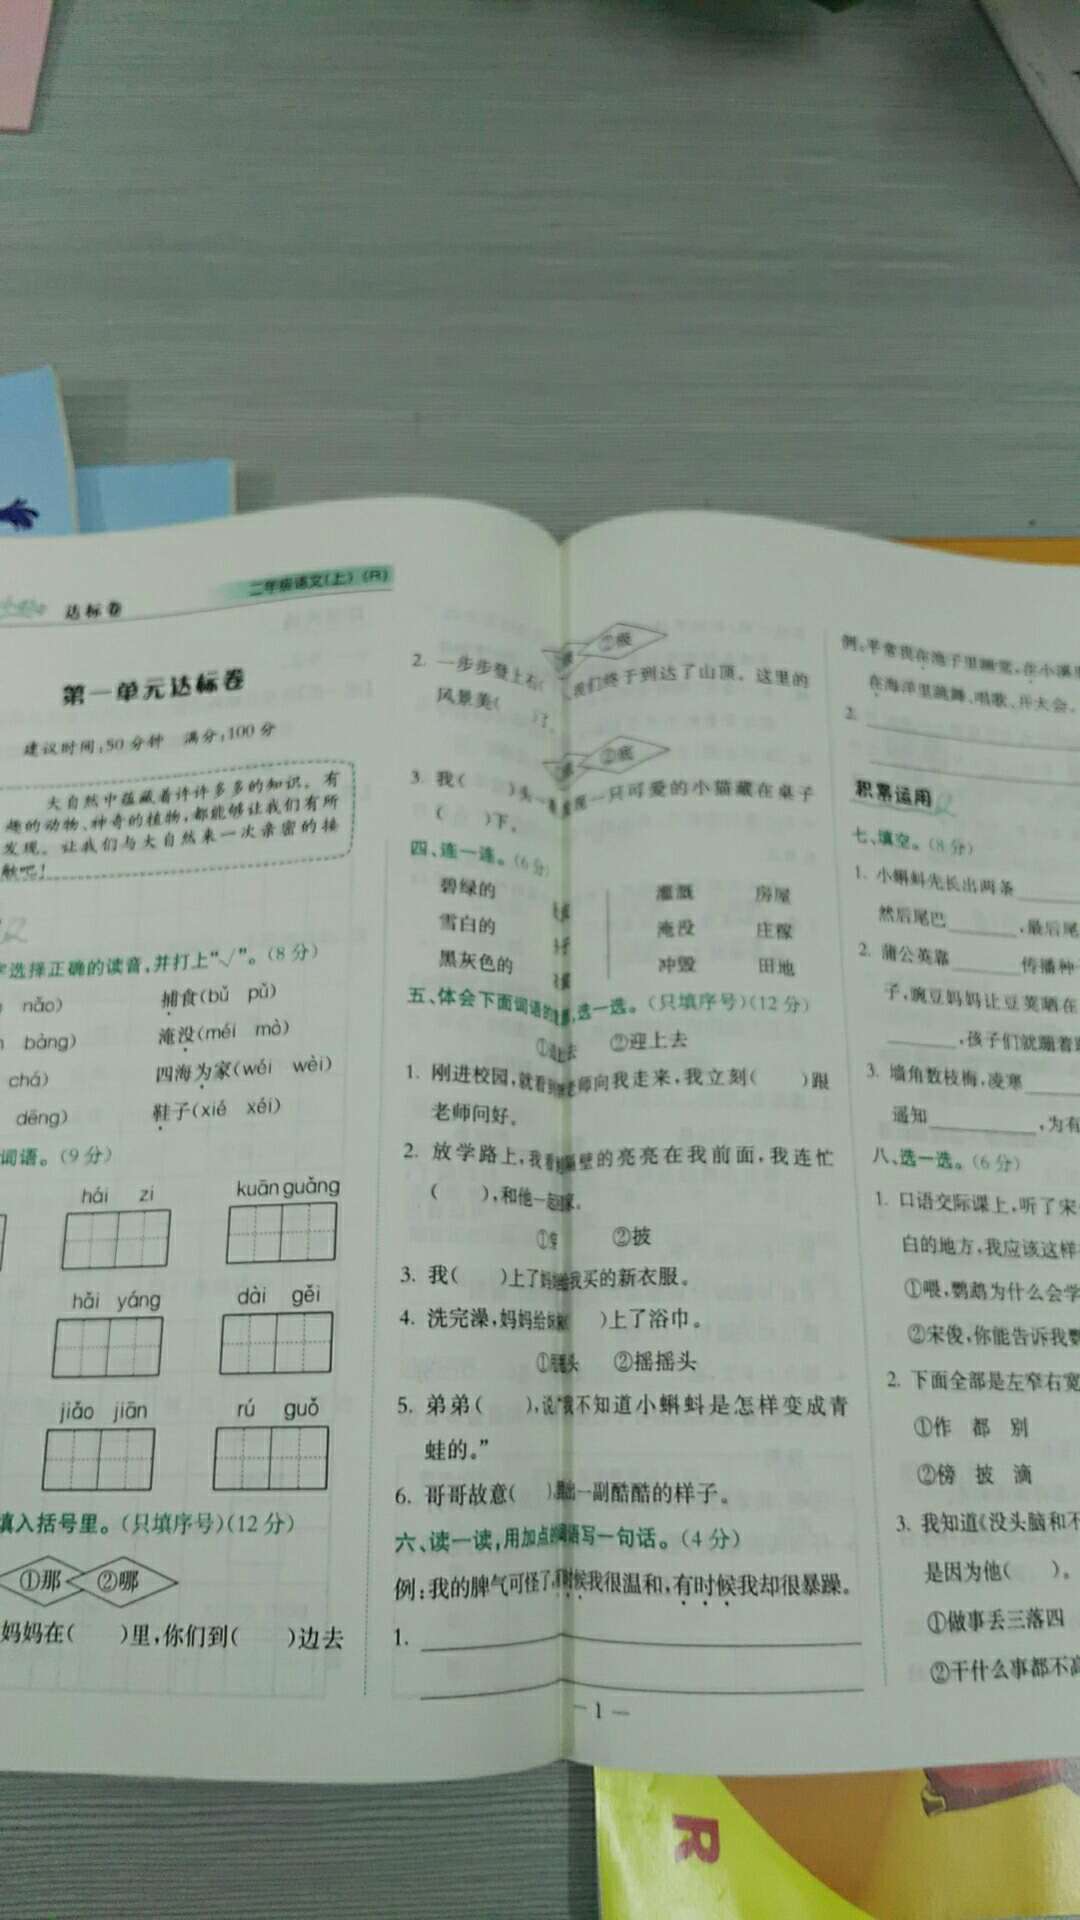 达标卷
二年级语文(上)(R)
第一单元达标卷
建议时间:50分钟 满分:100分
大自然中蕴藏着许许多多的知识。有
趣的动物、神奇的植物,都能够让我们有所
发现。让我们与大自然来一次亲密的接
触吧!
字选择正确的读音,并打上“√”。(8分)
nǎo) 捕食(bǔ pǔ)
bàng) 淹没(méi mò)
chá) 四海为家(wéi wèi)
dēng) 鞋子(xié xéi)
词语。(9分)
hái zi kuān guǎng
hǎi yáng dài gěi
jiǎo jiān rú guǒ
填入括号里。(只填序号)(12分)
①那 ②哪
妈妈在( )里,你们到( )边去
②级
2. 一步步登上石( 我们终于到达了山顶。这里的
风景美( )了。
②底
3. 我( )头一 只可爱的小猫藏在桌子
( )下。
四、连一连。(6分)
碧绿的 灌溉 房屋
雪白的 淹没 庄稼
黑灰色的 冲毁 田地
五、体会下面词语的 ,选一选。(只填序号)(12分)
①追上去 ②迎上去
1. 刚进校园,就看到 老师向我走来,我立刻( )跟
老师问好。
2. 放学路上,我看 隔壁的亮亮在我前面,我连忙
( ),和他一起回家。
①穿 ②披
3. 我( )上了妈妈给我买的新衣服。
4. 洗完澡,妈妈给 )上了浴巾。
头 ②摇摇头
5. 弟弟( ),说“我不知道小蝌蚪是怎样变成青
蛙的。”
6. 哥哥故意( ),摆出一副酷酷的样子。
六、读一读,用加点的词语写一句话。(4分)
例:我的脾气可怪了,有时候我很温和,有时候我却很暴躁。
1.
— 1 —
例:平常我在池子里睡觉,在小溪里
在海洋里跳舞、唱歌、开大会。
2.
积累运用
七、填空。(8分)
1. 小蝌蚪先长出两条
然后尾巴 ,最后尾
2. 蒲公英靠 传播种
子,豌豆妈妈让豆荚晒在
,孩子们就蹦着跳
3. 墙角数枝梅,凌寒
遥知 ,为有
八、选一选。(6分)
1. 口语交际课上,听了宋
白的地方,我应该这样
①喂,鹦鹉为什么会学
②宋俊,你能告诉我鹦
2. 下面全部是左窄右宽
①作 都 别
②傍 披 滴
3. 我知道《没头脑和不
是因为他( )。
①做事丢三落四
②干什么事都不高
R